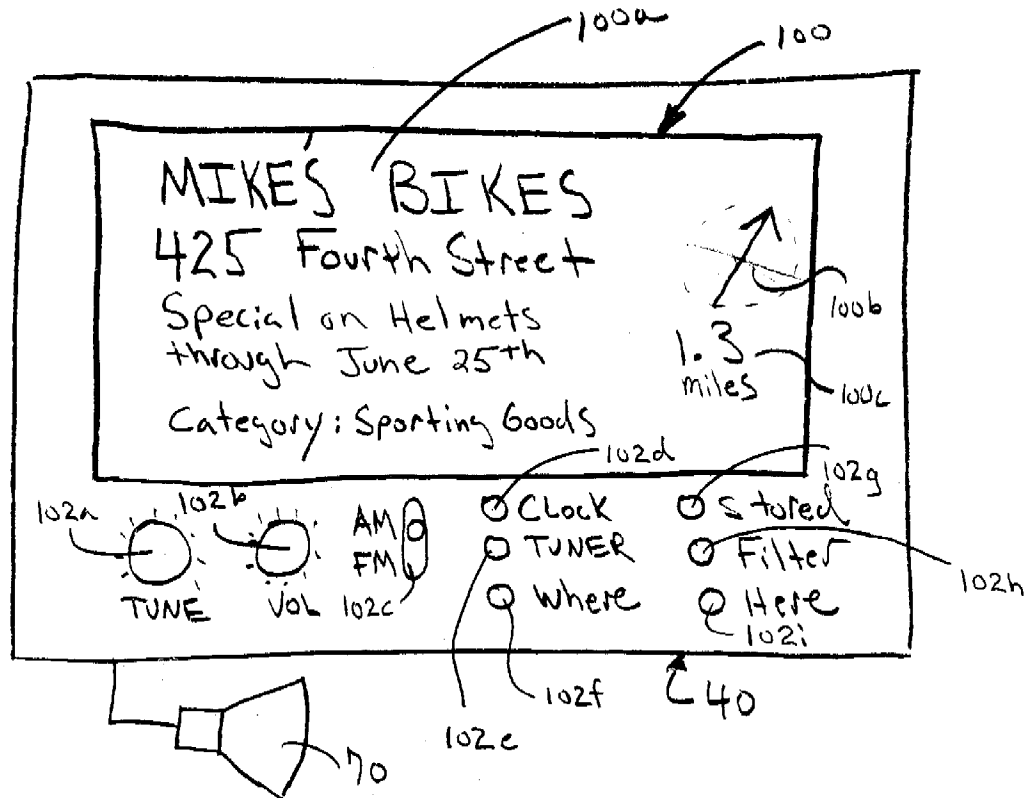 100a
100
MIKE'S BIKES
425 Fourth Street
Special on Helmets
through June 25th
Category: Sporting Goods
1.3
miles
100b
100c
102a
102b
102d
102g
TUNE
VOL
AM
FM
102c
Clock
TUNER
Where
Stored
Filter
Here
102h
102i
102e
102f
40
70